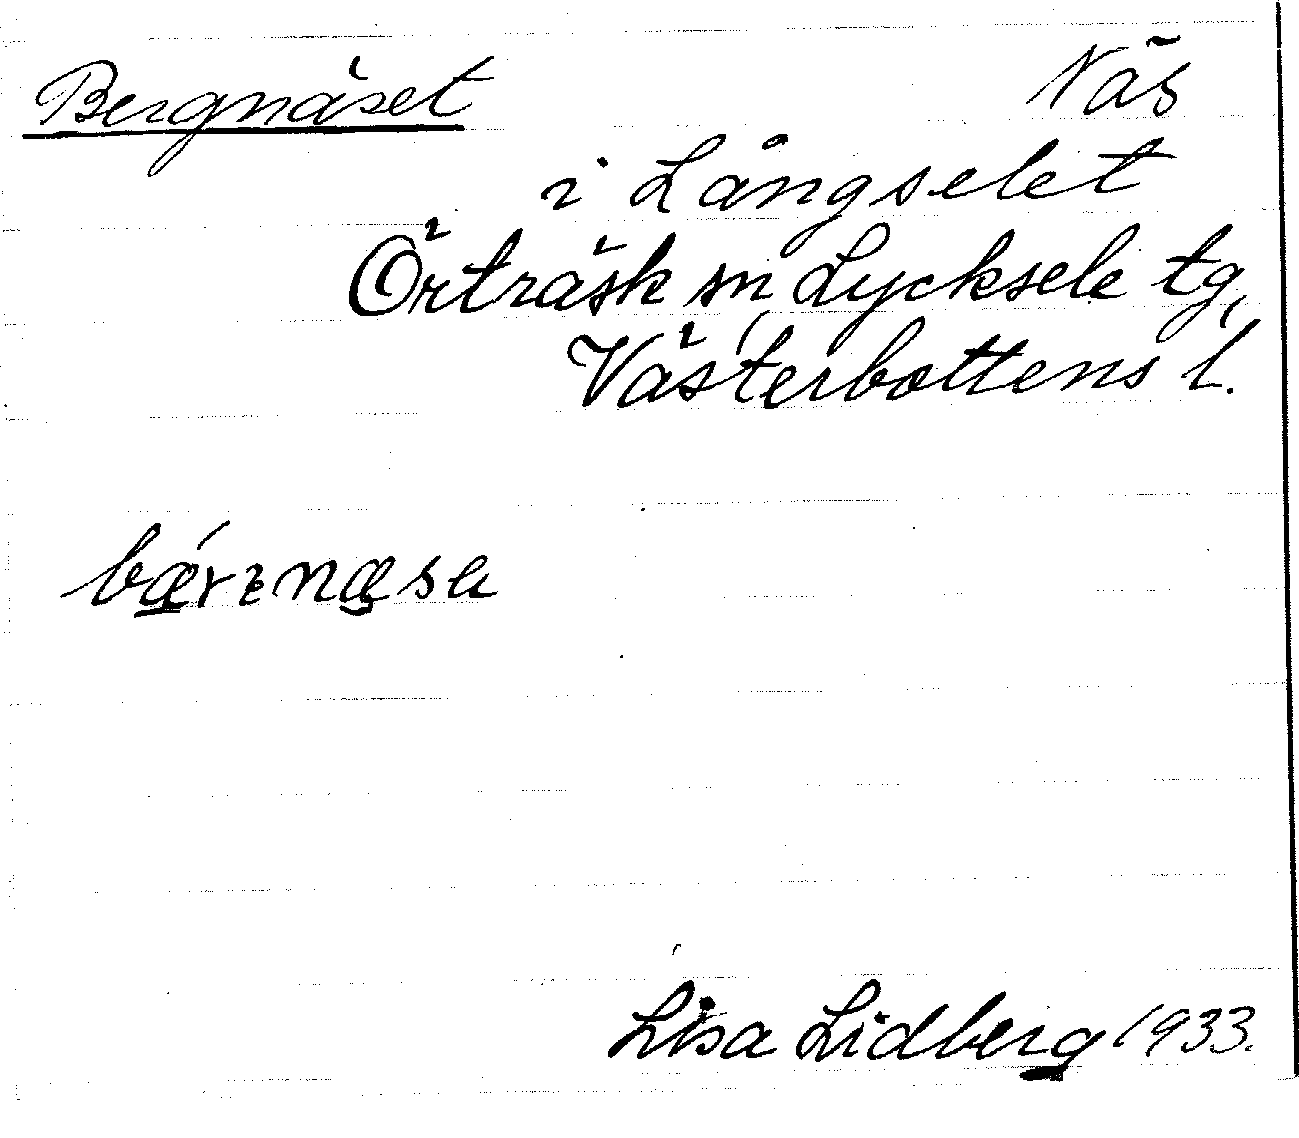 Bergnäset Näs
i Långselet
Örträsk sn, Lycksele tg,
Västerbottens l.
Lisa Lidberg 1933.